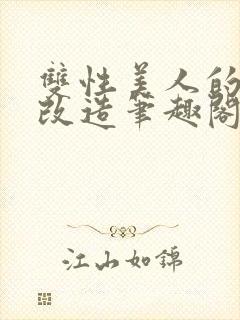 雙性美人的
改造筆趣閣
江山如錦